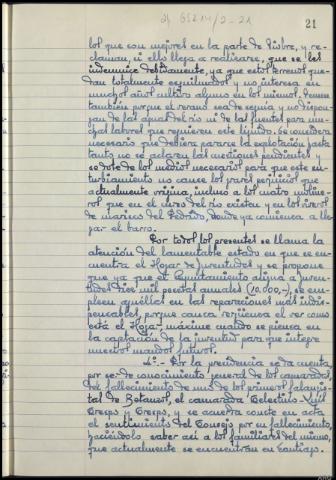 21
los que son mejores en la parte de Tiobre, y re-
claman, si ello llega a realizarse, que se les
indemnice debidamente, ya que estos terrenos que-
dan totalmente esquilmados y no interesa en
muchos años cultivo alguno en los mismos. Temen
también que el verano sea de sequía y no dispon-
gan de las aguas del río ni de las fuentes para mu-
chas labores que requieren este líquido. Se considera
necesario que debiera pararse la explotación hasta
tanto no se aclaren las cuestiones pendientes y
se dote de los medios necesarios para que este en-
turbiamiento no cause los graves perjuicios que
actualmente origina, incluso a los cuatro moline-
ros que en el curso del río existen y en los viveros
de mariscos del Pedrido, donde ya comienza a lle-
gar el barro.
Por todos los presentes se llama la
atención del lamentable estado en que se en-
cuentra el Hogar de Juventudes y se propone
que ya que el Ayuntamiento asigna a Juven-
tudes diez mil pesetas anuales (10.000,-), se em-
pleen aquéllas en las reparaciones más indis-
pensables, porque causa vergüenza el ver como
está el Hogar, máxime cuando se piensa en
la captación de la juventud para que integre
nuestros mandos futuros.
4º.- Por la presidencia se da cuenta,
por ser de conocimiento general de los camaradas,
del fallecimiento de uno de los primeros falangis-
tas de Betanzos, el camarada Celestino Luis
Crespo y Crespo, y se acuerda conste en acta
el sentimiento del Consejo por su fallecimiento,
haciéndolo saber así a los familiares del mismo,
que actualmente se encuentran en Santiago.